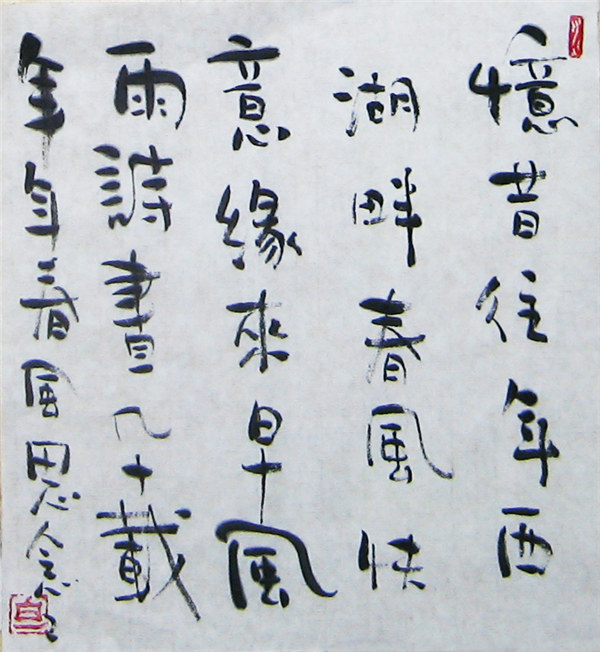 憶昔往年西
湖畔春風快
意緣來早風
雨詩書几十載
年年春風思念